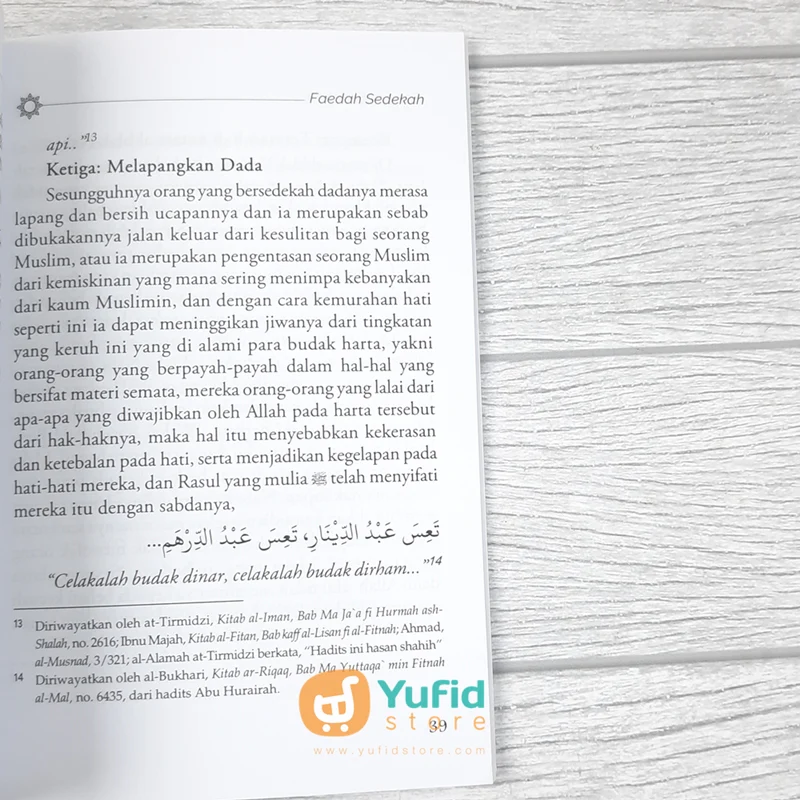 Faedah Sedekah
api.."13
Ketiga: Melapangkan Dada
Sesungguhnya orang yang bersedekah dadanya merasa
lapang dan bersih ucapannya dan ia merupakan sebab
dibukakannya jalan keluar dari kesulitan bagi seorang
Muslim, atau ia merupakan pengentasan seorang Muslim
dari kemiskinan yang mana sering menimpa kebanyakan
dari kaum Muslimin, dan dengan cara kemurahan hati
seperti ini ia dapat meninggikan jiwanya dari tingkatan
yang keruh ini yang di alami para budak harta, yakni
orang-orang yang berpayah-payah dalam hal-hal yang
bersifat materi semata, mereka orang-orang yang lalai dari
apa-apa yang diwajibkan oleh Allah pada harta tersebut
dari hak-haknya, maka hal itu menyebabkan kekerasan
dan ketebalan pada hati, serta menjadikan kegelapan pada
hati-hati mereka, dan Rasul yang mulia ﷺ telah menyifati
mereka itu dengan sabdanya,
تَعِسَ عَبْدُ الدِّيْنَارِ، تَعِسَ عَبْدُ الدِّرْهَمِ...
"Celakalah budak dinar, celakalah budak dirham..."14
13 Diriwayatkan oleh at-Tirmidzi, Kitab al-Iman, Bab Ma Ja`a fi Hurmah ash-
Shalah, no. 2616; Ibnu Majah, Kitab al-Fitan, Bab kaff al-Lisan fi al-Fitnah; Ahmad,
al-Musnad, 3/321; al-Alamah at-Tirmidzi berkata, "Hadits ini hasan shahih"
14 Diriwayatkan oleh al-Bukhari, Kitab ar-Riqaq, Bab Ma Yuttaqa` min Fitnah
al-Mal, no. 6435, dari hadits Abu Hurairah.
Yufid
store
39
www.yufidstore.com